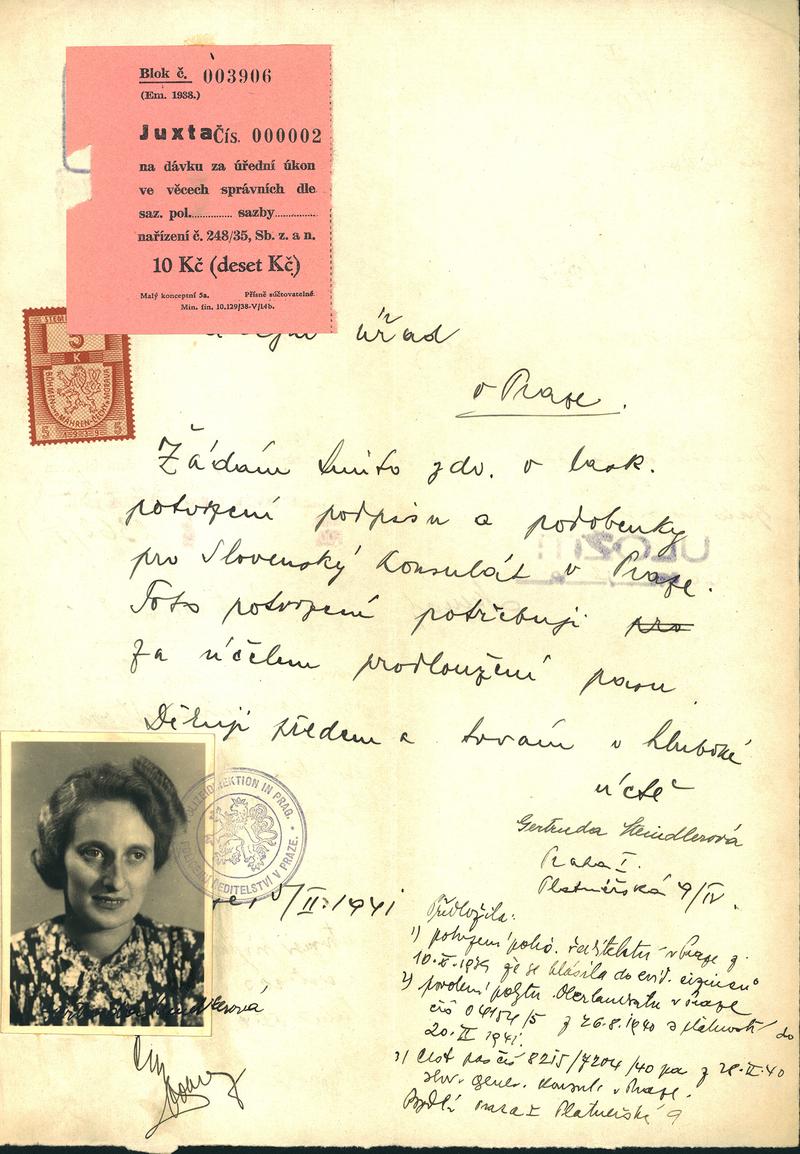 Blok č. 003906
(Em. 1938.)
Juxta Čís. 000002
na dávku za úřední úkon
ve věcech správních dle
saz. pol............. sazby.............
nařízení č. 248/35, Sb. z. a n.
10 Kč (deset Kč)
Malý konceptní 5a. Přísně súčtovatelné
Min. fin. 10.129/38-V/14b.
5
K
BÖHMEN u. MÄHREN ČECHY a MORAVA
5 1939 5
úřad
v Praze.
Žádám tímto zdv. o lask.
potvrzení podpisu a podobenky
pro Slovenský Konsulát v Praze.
Toto potvrzení potřebuji pro
za účelem prodloužení pasu.
Děkuji předem a trvám v hluboké
úctě
Gertruda Steindlerová
Praha I.
Platnéřská 9/IV.
POLIZEIDIREKTION IN PRAG.
POLICEJNÍ ŘEDITELSTVÍ V PRAZE.
/II. 1941
Gertruda Steindlerová
Předložila:
1) potvrzení polic. ředitelství v Praze z
10.X.1939 že se hlásila do evid. cizinců
2) povolení pobytu Oberlandratu v Praze
čís 04154/5 z 26.8.1940 s platností do
20.II 1941.
3) Cest pas čís 8215/7204/40 z 28.II.40
slov. gener. konsul. v Praze.
Bydlí Praha I Platnéřská 9
ULOŽIT